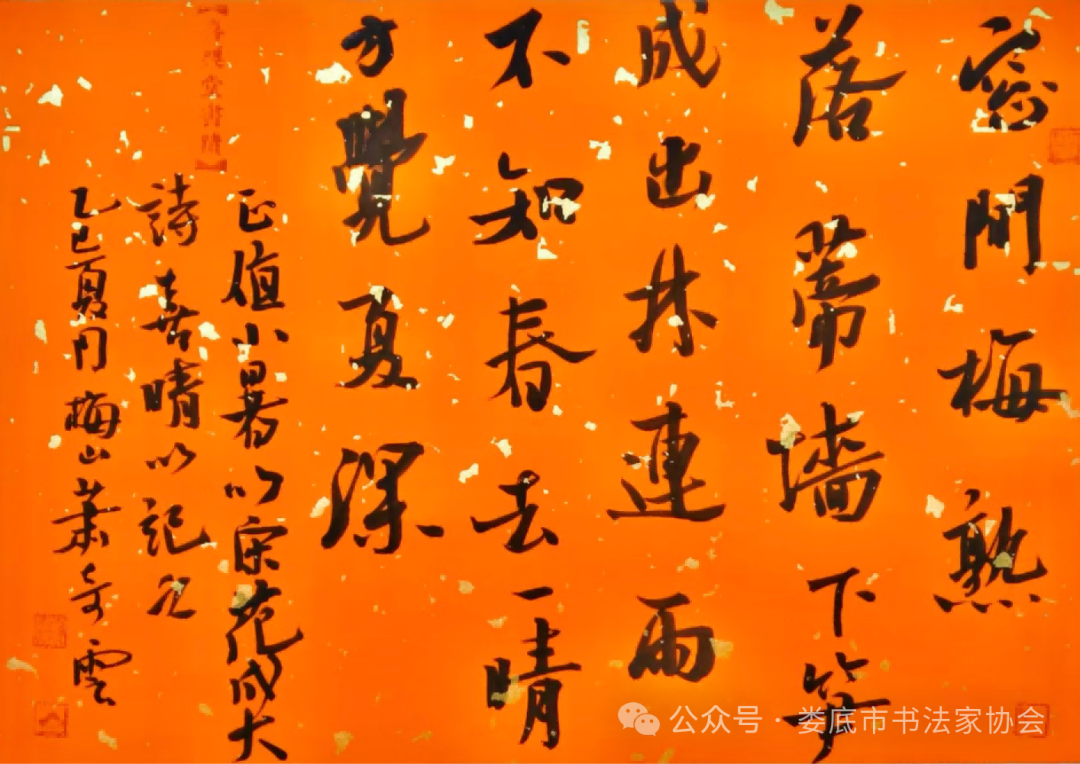 窗間梅熟
落蒂墻下笋
成出林連雨
不知春去一晴
方覺夏深
正值小暑以宋范成大
詩喜晴以記之
乙巳夏月梅山蕭奇雲
公众号 · 娄底市书法家协会